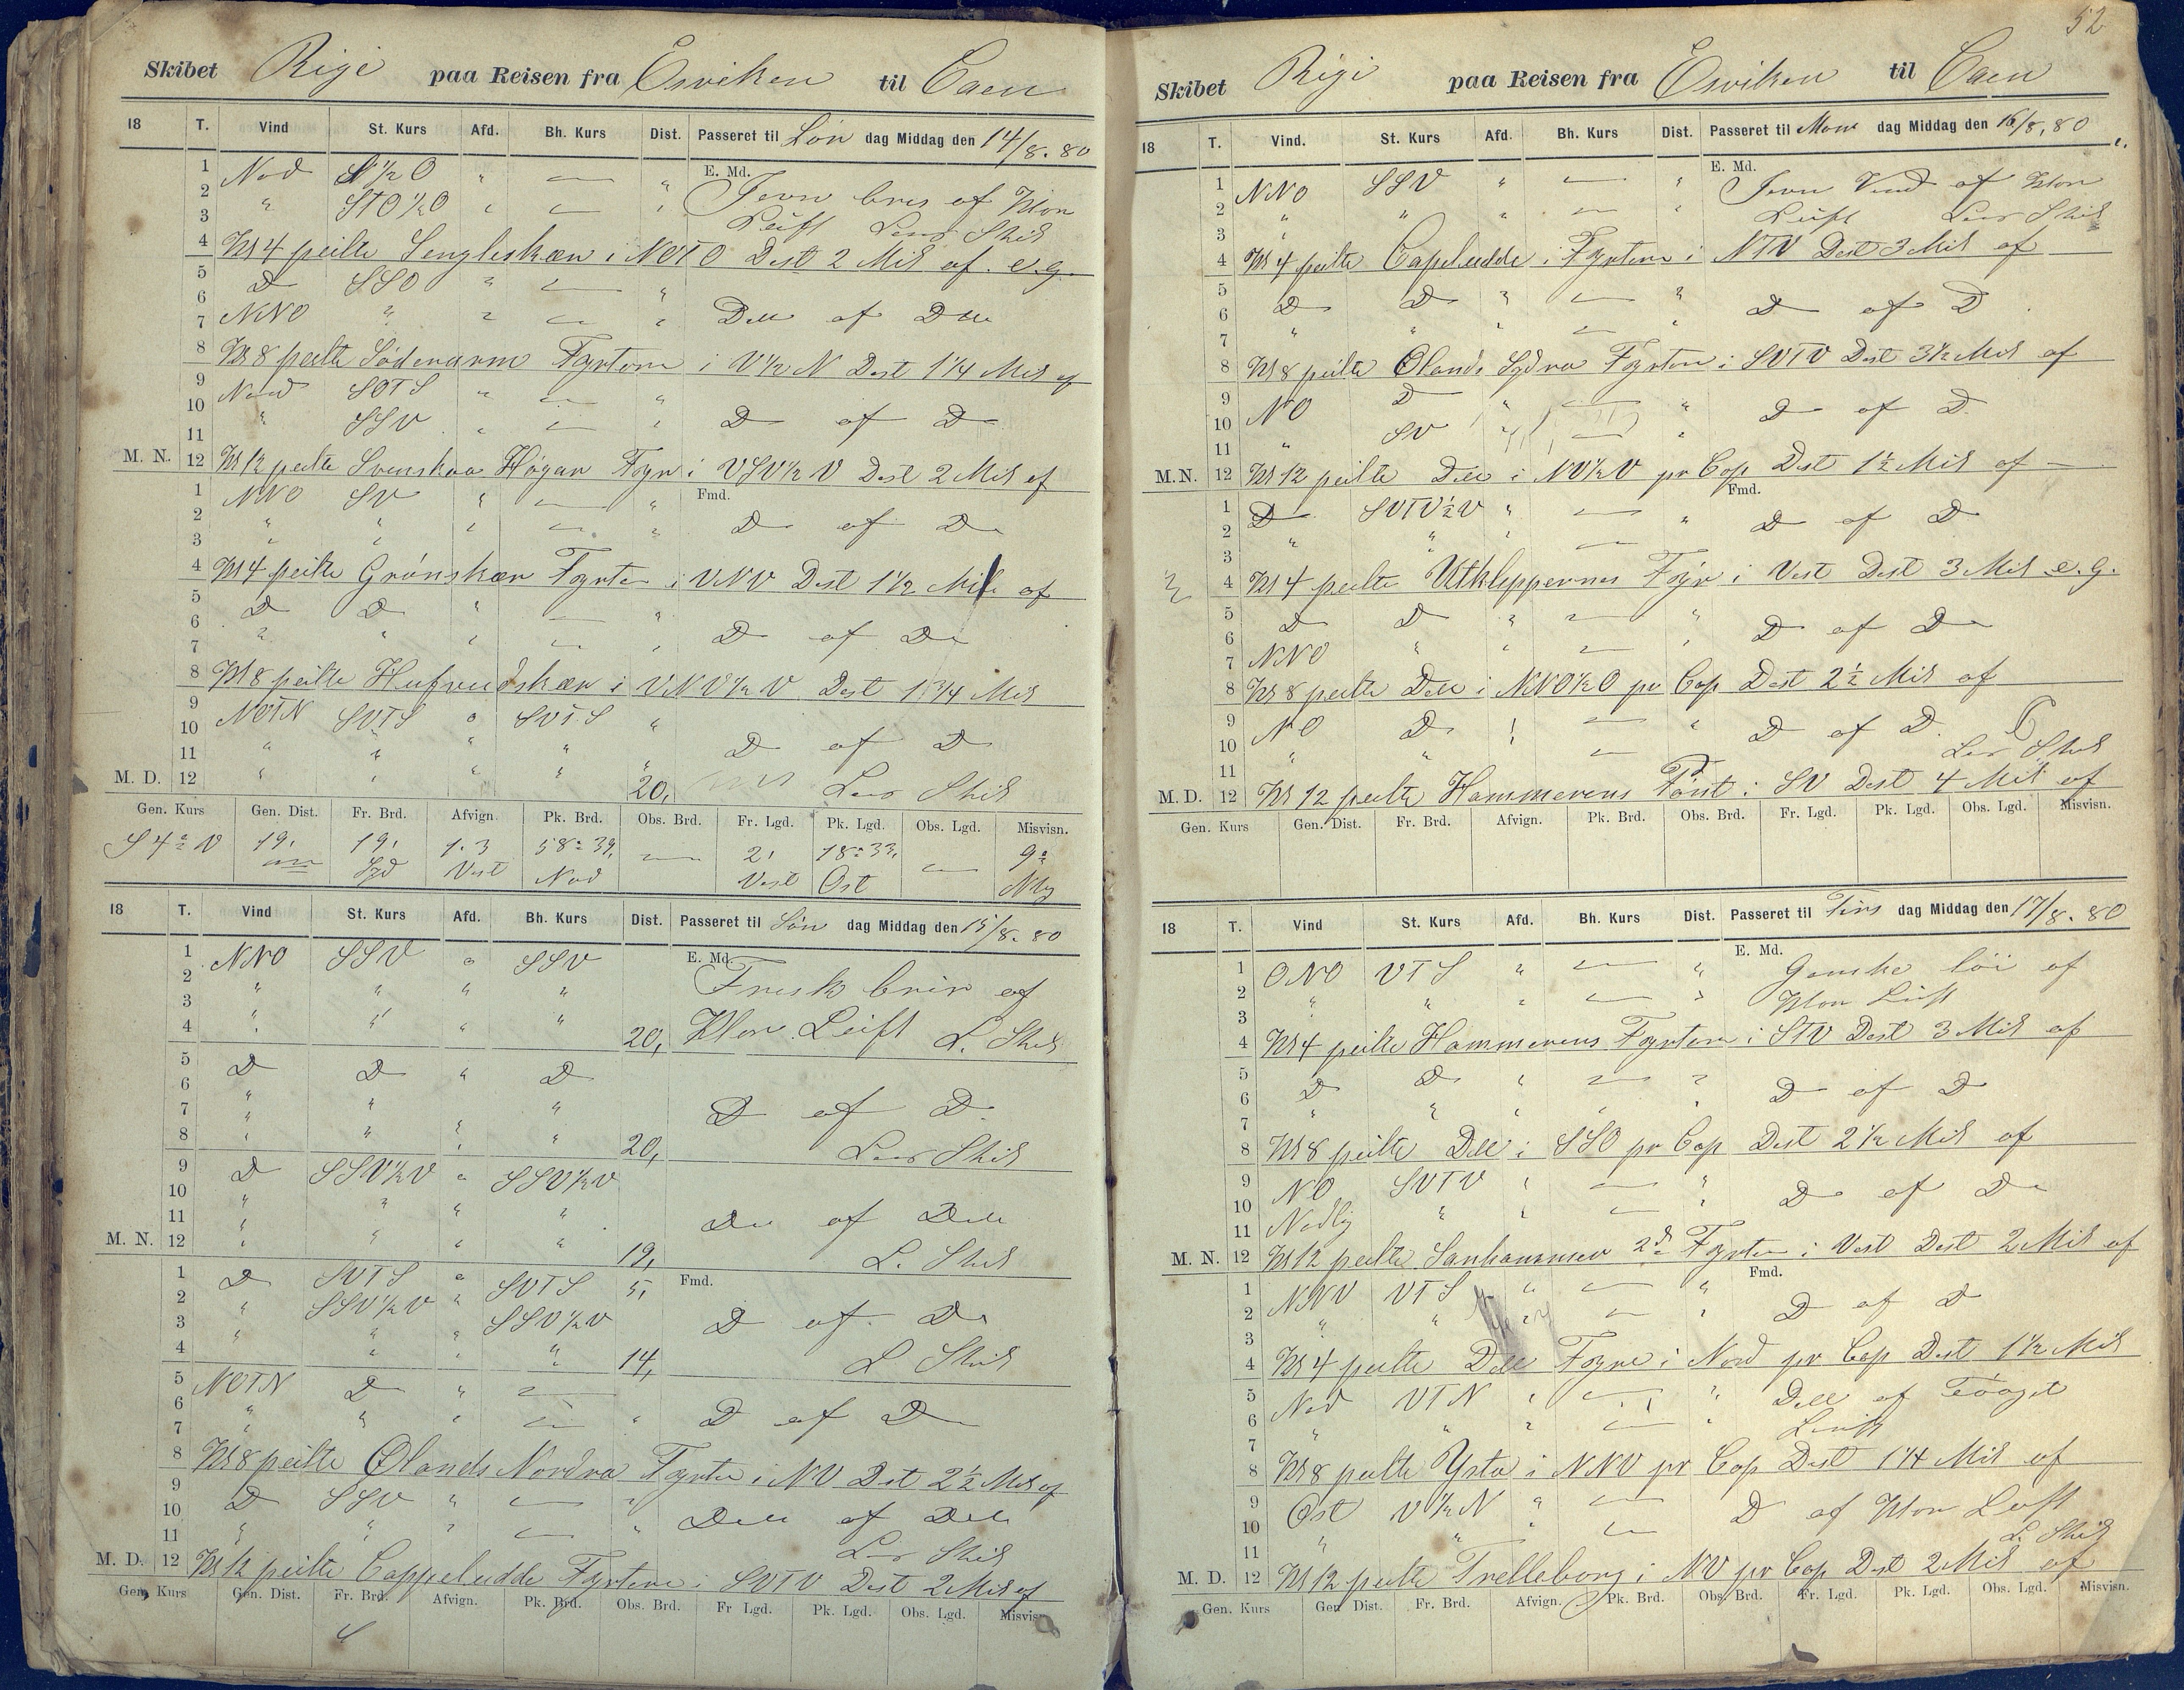 Skibet Rigi paa Reisen fra Ösviken til Caen
18 T. Vind St. Kurs Afd. Bh. Kurs Dist. Passeret til Lön dag Middag den 14/8. 80
E. Md.
1 Nod S 1/2 O " — "
2 " STO 1/2 O " — " Jevn bris af Klar
3 Luft Lens Skib
4 Kl 4 peilte Sengleskæn i NOTO Dist 2 Mil af. e.g.
5 D SSO " — "
6
7 NNO " " — " Dtto af Dtto
8 Kl 8 peilte Söderarm Fyrtorn i V 1/2 N Dist 1 1/4 Mil af
9 Nord SOTS " — "
10 " SSV " — " D af D
11
M. N. 12 Kl 12 peilte Svenskaa Högar Fyr i VSV 1/2 V Dist 2 Mil af
Fmd.
1 NNO SV " — "
2 " " " — " D af D
3 " "
4 Kl 4 peilte Grönskær Fyrtor i VNV Dist 1 1/2 Mil af
5 D D " — "
6 " " " — " D af D
7
8 Kl 8 peilte Hufvudskær i VNV 1/2 V Dist 1 3/4 Mil
9 NOTN SVTS " SVTS "
10 " " " " D af D
11
M. D. 12 " " " " 20, Lens Skib
Gen. Kurs Gen. Dist. Fr. Brd. Afvign. Pk. Brd. Obs. Brd. Fr. Lgd. Pk. Lgd. Obs. Lgd. Misvisn.
S 4° V 19, 19, 1.3 58° 39, — 2, 18° 33, — 9°
Syd Vest Nod Vest Ost Nlg
18 T. Vind St. Kurs Afd. Bh. Kurs Dist. Passeret til Sön dag Middag den 15/8. 80
E. Md.
1 NNO SSV " SSV
2 " " " " Frisk bris af
3 " " " "
4 " " " " 20, Klar Luft L. Skib
5 D D " D
6 " " "
7 " " " " D af D
8 " " " " 20, Lens Skib
9 D SSV 1/2 V " SSV 1/2 V
10 " " " "
11 " " " " Dtto af Dtto
M. N. 12 " " " " 19, L. Skib
Fmd.
1 D SVTS " SVTS 5,
2 " SSV 1/2 V " SSV 1/2 V
3 " " " " D af D
4 " " " 14, L Skib
5 NOTN D " —
6 " " " — " D af D
7
8 Kl 8 peilte Ølands Nordra Fyrtor i NV Dist 2 1/2 Mil af
9 D SSV " — "
10 " " " — " Dtto af Dtto
11 Lens Skib
M. D. 12 Kl 12 peilte Cappeludde Fyrtorn i SVTV Dist 2 Mil af
Gen. Kurs Gen. Dist. Fr. Brd. Afvign. Pk. Brd. Obs. Brd. Fr Lgd. Pk. Lgd. Obs. Lgd. Misvisn.
52
Skibet Rigi paa Reisen fra Ösviken til Caen
18 T. Vind. St. Kurs Afd. Bh. Kurs Dist. Passeret til Man dag Middag den 16/8, 80
E. Md.
1 NNO SSV " — " Jevn Vind af Klar
2 " " " — " Luft Lens Skib
3
4 Kl 4 peilte Capeludde i Fyrtorn i NTV Dist 3 Mil af
5 D D " — "
6 " " " — D af D
7
8 Kl 8 peilte Ølands Sydra Fyrtorn i SVTV Dist 3 1/2 Mil af
9 NO D " — "
10 " SV " — " D af D
11
M. N. 12 Kl 12 peilte Dtto i NV 1/2 V pr Cop Dist 1 1/2 Mil af
Fmd.
1 D SVTV 1/2 V " — "
2 " " — D af D
3
4 Kl 4 peilte Utklippernes Fyr i Vest Dist 3 Mil e.g.
5 D D " — "
6 D af D
7 NNO " " — "
8 Kl 8 peilte Dtto i NNO 1/2 O pr Cop Dist 2 1/2 Mil af
9 NO D " — "
10 " " " — D af D
11 Lens Skib
M. D. 12 Kl 12 peilte Hammerens Pönt i SV Dist 4 Mil af
Gen. Kurs Gen. Dist. Fr. Brd. Afvign. Pk. Brd. Obs. Brd. Fr. Lgd. Pk. Lgd. Obs. Lgd. Misvisn.
18 T. Vind St. Kurs Afd. Bh. Kurs Dist. Passeret til Tirs dag Middag den 17/8. 80
E. Md.
1 ONO VTS " — " Ganske löi af
2 " " " — " Klar Luft
3
4 Kl 4 peilte Hammerens Fyrtorn i STV Dist 3 Mil af
5 D D " — "
6 " " " " D af D
7
8 Kl 8 peilte Dtto i SSO pr Cop Dist 2 1/2 Mil af
9 NO SVTV " — "
10 Nodlig " " — " D af D
11
M. N. 12 Kl 12 peilte Sanhammer 2de Fyrtor i Vest Dist 2 Mil af
Fmd.
1 NNV VTS " — "
2 " " " — " D af D
3
4 Kl 4 peilte Dtto Fyre i Nord pr Cop Dist 1 1/2 Mil
5 Nod VTN " — " Dtto af Tåaget
6 " " " — " Luft
7
8 Kl 8 peilte Ysta i NNV pr Cop Dist 1 1/4 Mil af
9 Ost V 1/2 N " — D af Klar Luft
10 " " " — L. Skib
11
M. D. 12 Kl 12 peilte Trelleborg i NV pr Cop Dist 2 Mil af
Gen. Kurs Gen Dist. Fr. Brd. Afvign. Pk. Brd. Obs. Brd. Fr. Lgd. Pk. Lgd. Obs. Lgd. Misvisn.